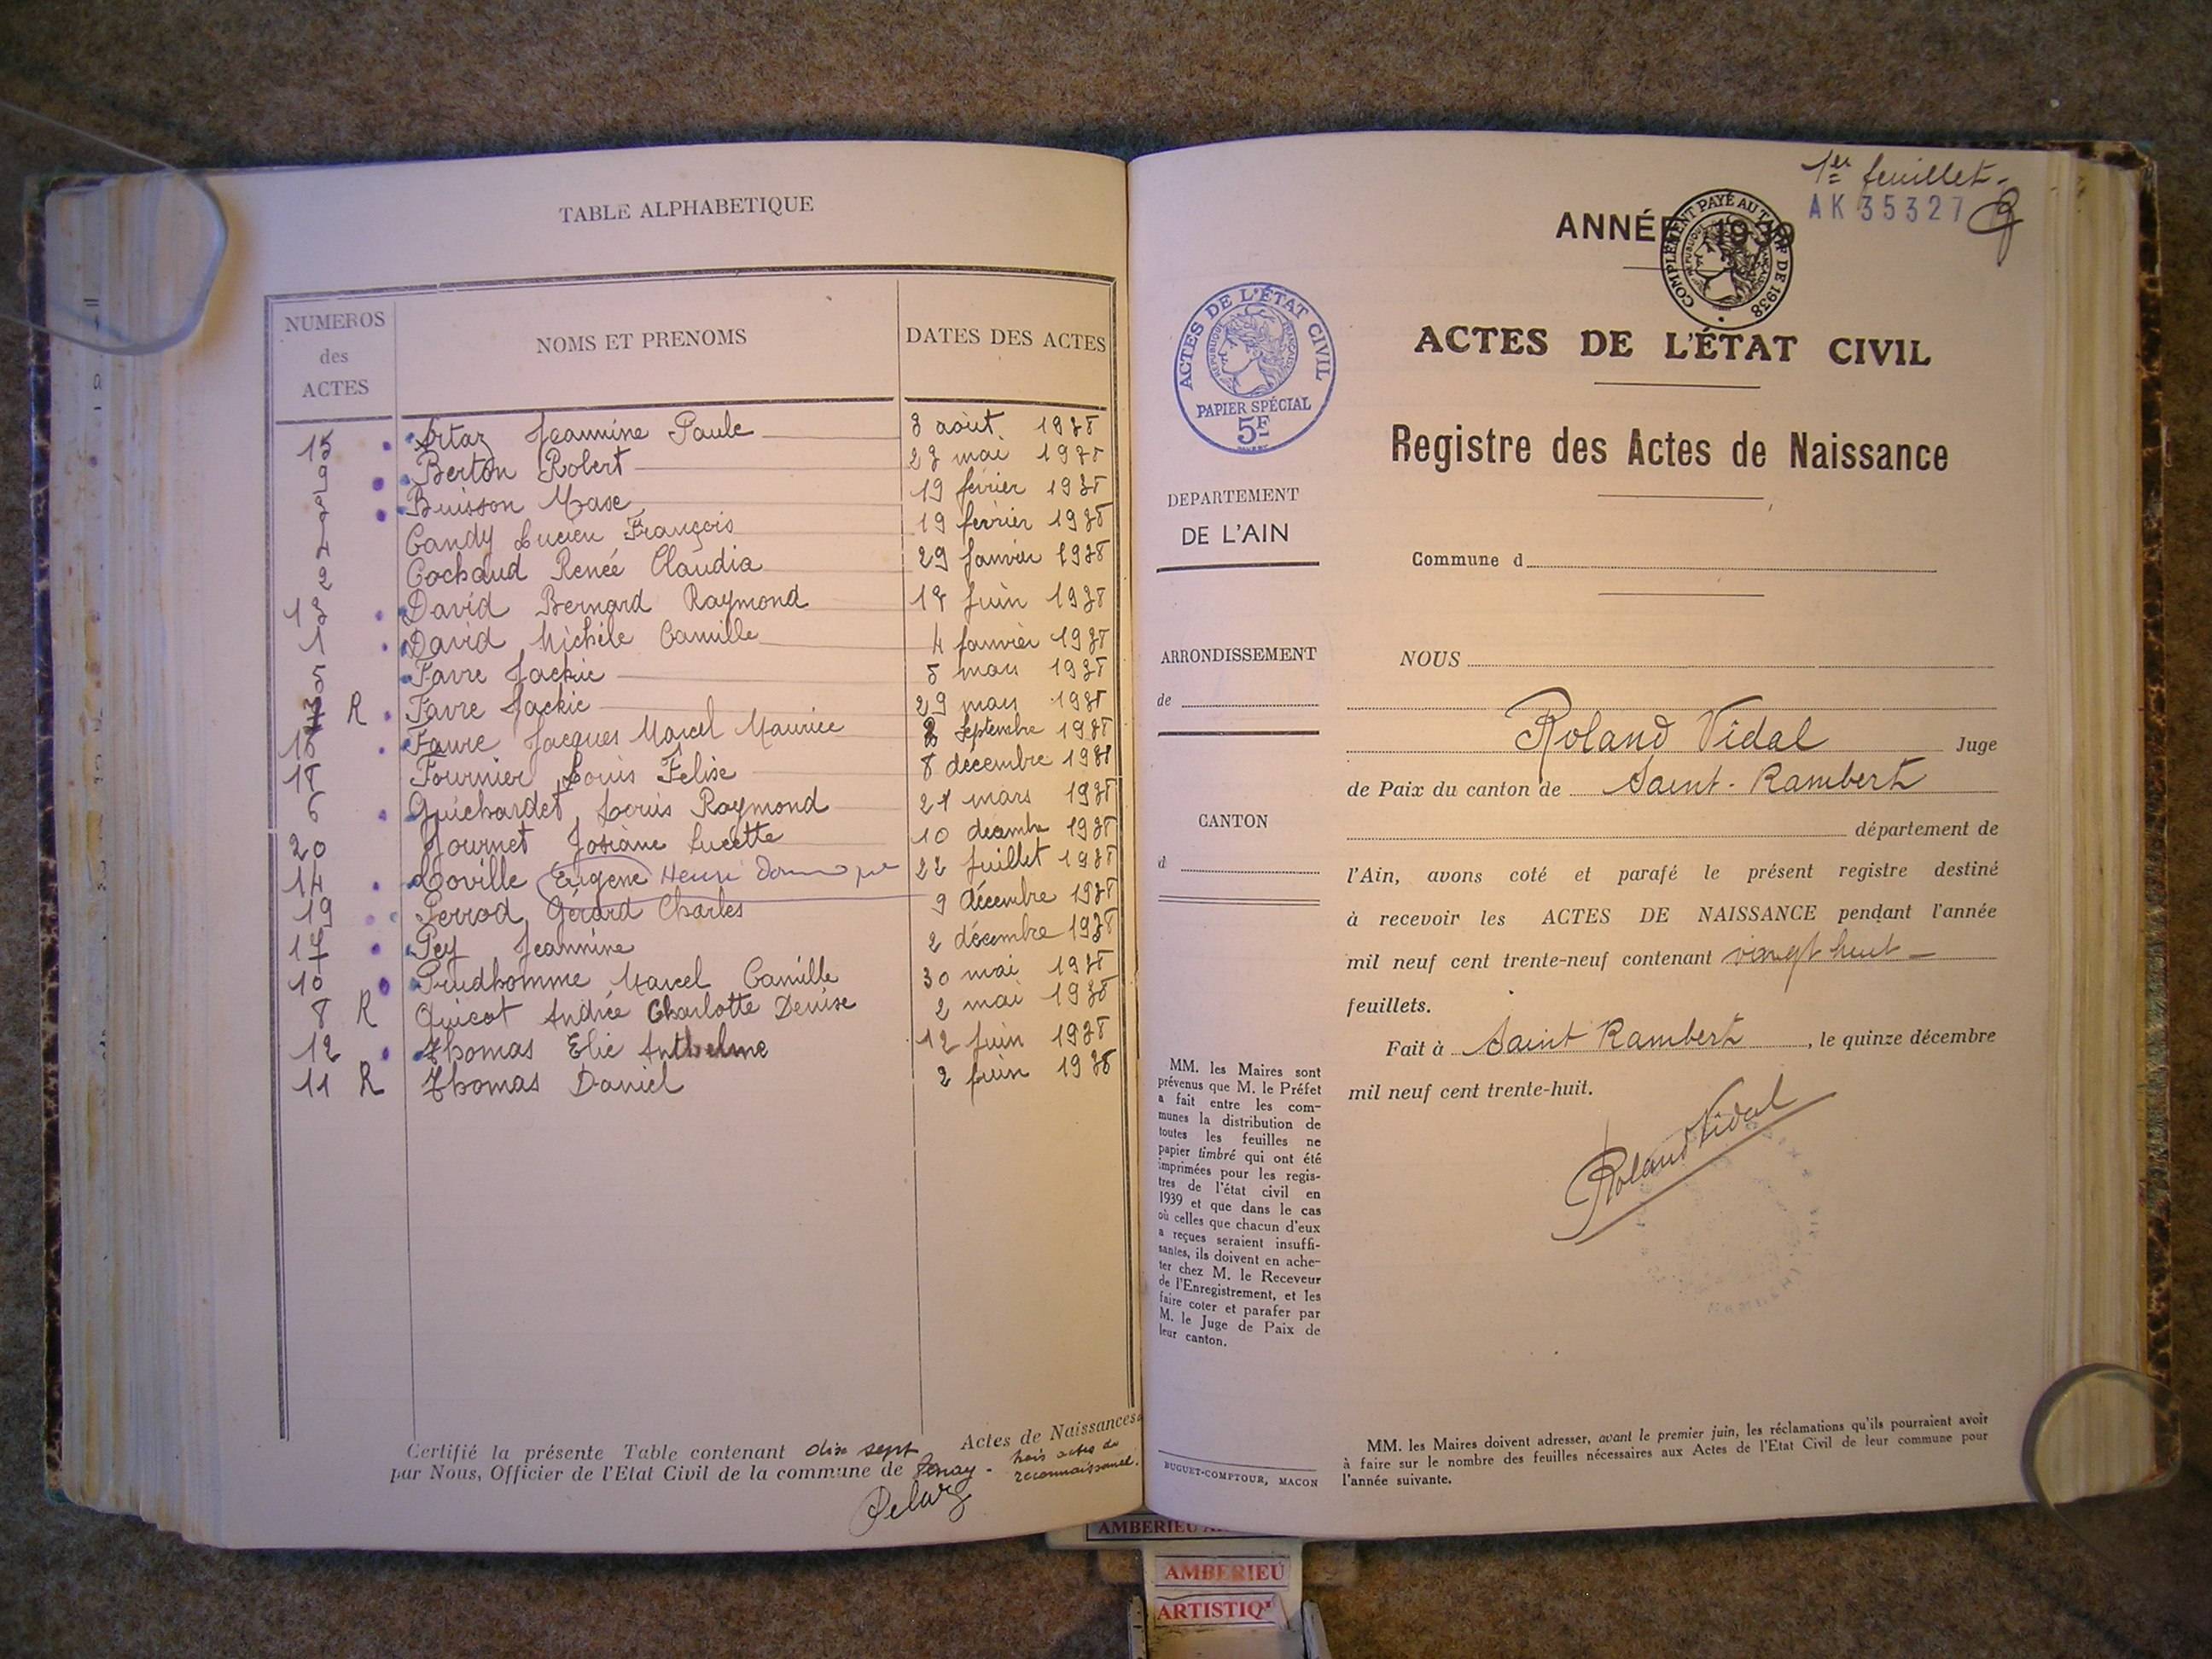 TABLE ALPHABETIQUE
NUMEROS des ACTES NOMS ET PRENOMS DATES DES ACTES
15 Artaz Jeannine Paule 3 août 1938
9 Berton Robert 23 mai 1938
3 Buisson Maxe 19 février 1938
4 Candy Lucien François 19 février 1938
2 Cochaud Renée Claudia 29 Janvier 1938
13 David Bernard Raymond Juin 1938
1 David Michèle Camille 4 Janvier 1938
5 Favre Jackie 5 mars 1938
R Favre Jackie 29 mars 1938
Favre Jacques Marcel Maurice Septembre 1938
18 Fournier Louis Felise 8 décembre 1938
6 Guichardet Louis Raymond 21 mars 1938
20 Journet Josiane Lucette 10 décembre 1938
14 Loville Eugène Henri 22 Juillet 1938
19 Perrod Gérard Charles 9 décembre 1938
17 Pey Jeannine 2 décembre 1938
10 Prudhomme Marcel Camille 30 mai 1938
8 R Quicot Andrée Charlotte Denise 2 mai 1938
12 Thomas Elie Anthelme 12 Juin 1938
11 R Thomas Daniel 2 Juin 1938
Certifié la présente Table contenant dix sept Actes de Naissances
trois actes de
par Nous, Officier de l'Etat Civil de la commune de Tenay -
reconnaissance.
1er feuillet.
AK 35327
ANNÉE 1939
COMPLÉMENT PAYÉ AU TARIF DE 1938
RÉPUBLIQUE FRANÇAISE
ACTES DE L'ÉTAT CIVIL
RÉPUBLIQUE FRANÇAISE
PAPIER SPÉCIAL
5F
ACTES DE L'ÉTAT CIVIL
Registre des Actes de Naissance
DEPARTEMENT
DE L'AIN
Commune d
ARRONDISSEMENT
de
CANTON
d
NOUS
Roland Vidal Juge
de Paix du canton de Saint-Rambert
département de
l'Ain, avons coté et parafé le présent registre destiné
à recevoir les ACTES DE NAISSANCE pendant l'année
mil neuf cent trente-neuf contenant vingt huit
feuillets.
Fait à Saint Rambert, le quinze décembre
mil neuf cent trente-huit.
Roland Vidal
MM. les Maires sont
prévenus que M. le Préfet
a fait entre les com-
munes la distribution de
toutes les feuilles ne
papier timbré qui ont été
imprimées pour les regis-
tres de l'état civil en
1939 et que dans le cas
où celles que chacun d'eux
a reçues seraient insuffi-
santes, ils doivent en ache-
ter chez M. le Receveur
de l'Enregistrement, et les
faire coter et parafer par
M. le Juge de Paix de
leur canton.
BUGUET-COMPTOUR, MACON
MM. les Maires doivent adresser, avant le premier juin, les réclamations qu'ils pourraient avoir
à faire sur le nombre des feuilles nécessaires aux Actes de l'Etat Civil de leur commune pour
l'année suivante.
AMBERIEU
AMBERIEU
ARTISTIQ